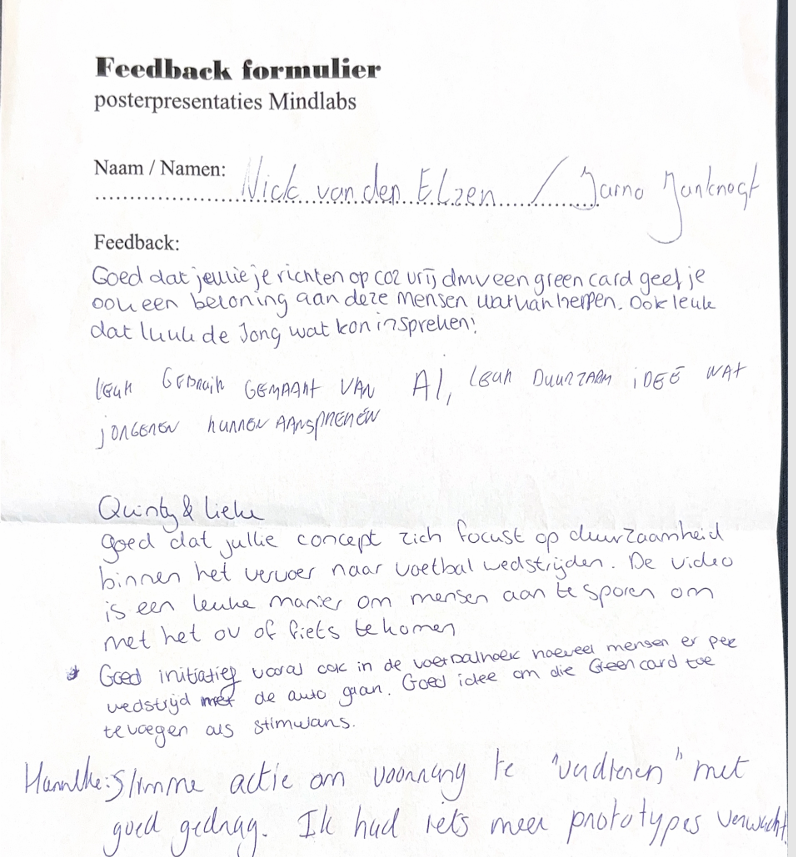 Feedback formulier
posterpresentaties Mindlabs
Naam / Namen: Nick van den Elzen / Jarno Jonknogt
Feedback:
Goed dat jullie je richten op co2 vrij dmv een green card geef je
ook een beloning aan deze mensen wat kan helpen. Ook leuk
dat Luuk de Jong wat kon inspreken!
Leuk Gebruik GEMAAKT VAN AI, Leuk DUURZAAM iDEE WAT
JONGEREN KUNNEN AANSPREKEN
Quinty & Lieke
goed dat jullie concept zich focust op duurzaamheid
binnen het vervoer naar voetbal wedstrijden. De video
is een leuke manier om mensen aan te sporen om
met het ov of fiets te komen
* Goed initiatief vooral ook in de voetbalhoek hoeveel mensen er per
wedstrijd met de auto gaan. Goed idee om die Greencard toe
te voegen als stimulans.
Hanneke: Slimme actie om voorrang te "verdienen" met
goed gedrag. Ik had iets meer prototypes verwacht